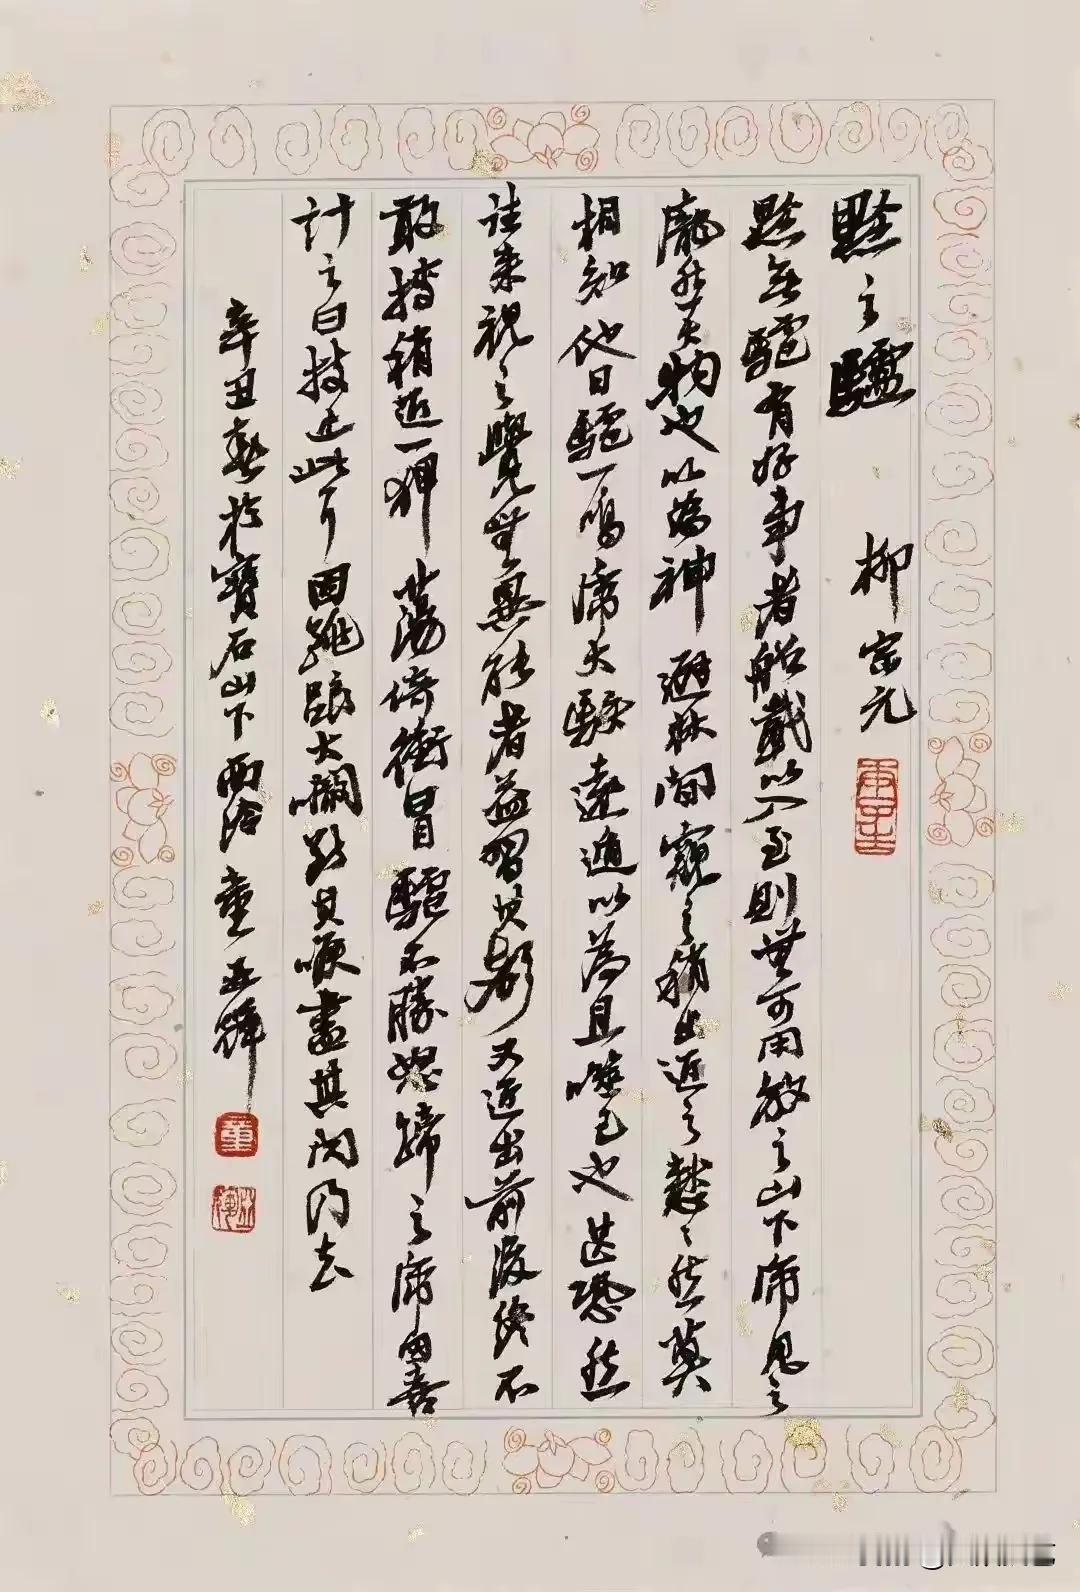 黔之驢 柳宗元
黔无驢有好事者船載以入至則無可用放之山下虎見之
龐然大物也以為神林間窺之稍出近之憖〻然莫
相知他日驢一鳴虎大駭遠遁以為且噬己也甚恐然
往来視之覺無異能者益習其聲又近出前後終不
敢搏稍近一狎蕩倚衝冒驢不勝怒蹄之虎因喜
計之曰技止此耳因跳踉大㘚斷其喉盡其肉乃去
辛丑於寶石山下雨童亚輝